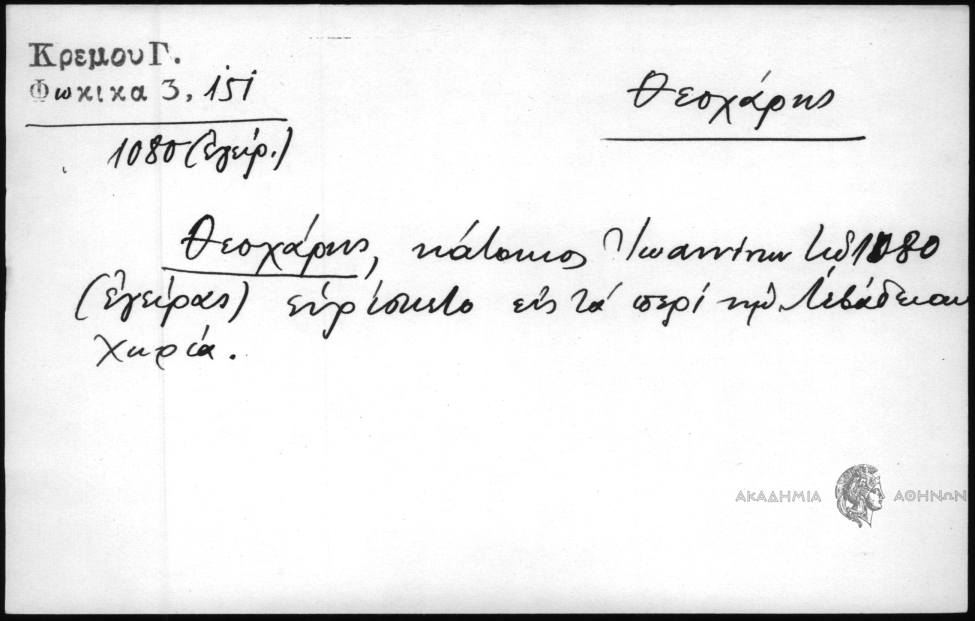 Κρεμου Γ.
Φωκικα 3, 151
Θεοχάρης
1080 (ἐγείρ.)
Θεοχάρης, κάτοικος Ἰωαννίνων τῷ 1080
(ἐγείρας) εὑρίσκετο εἰς τὰ περὶ τὴν Λεβάδειαν
χωρία.
ΑΚΑΔΗΜΙΑ ΑΘΗΝΩΝ